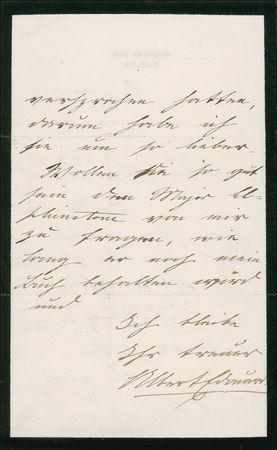 versprochen hatten,
darum habe ich
sie um so lieber.
Wollen Sie so gut
sein den Major El-
phinstone von mir
zu fragen, wie
lang er noch mein
Buch behalten wird
und
Ich bleibe
Ihr treuer
Albert Edward